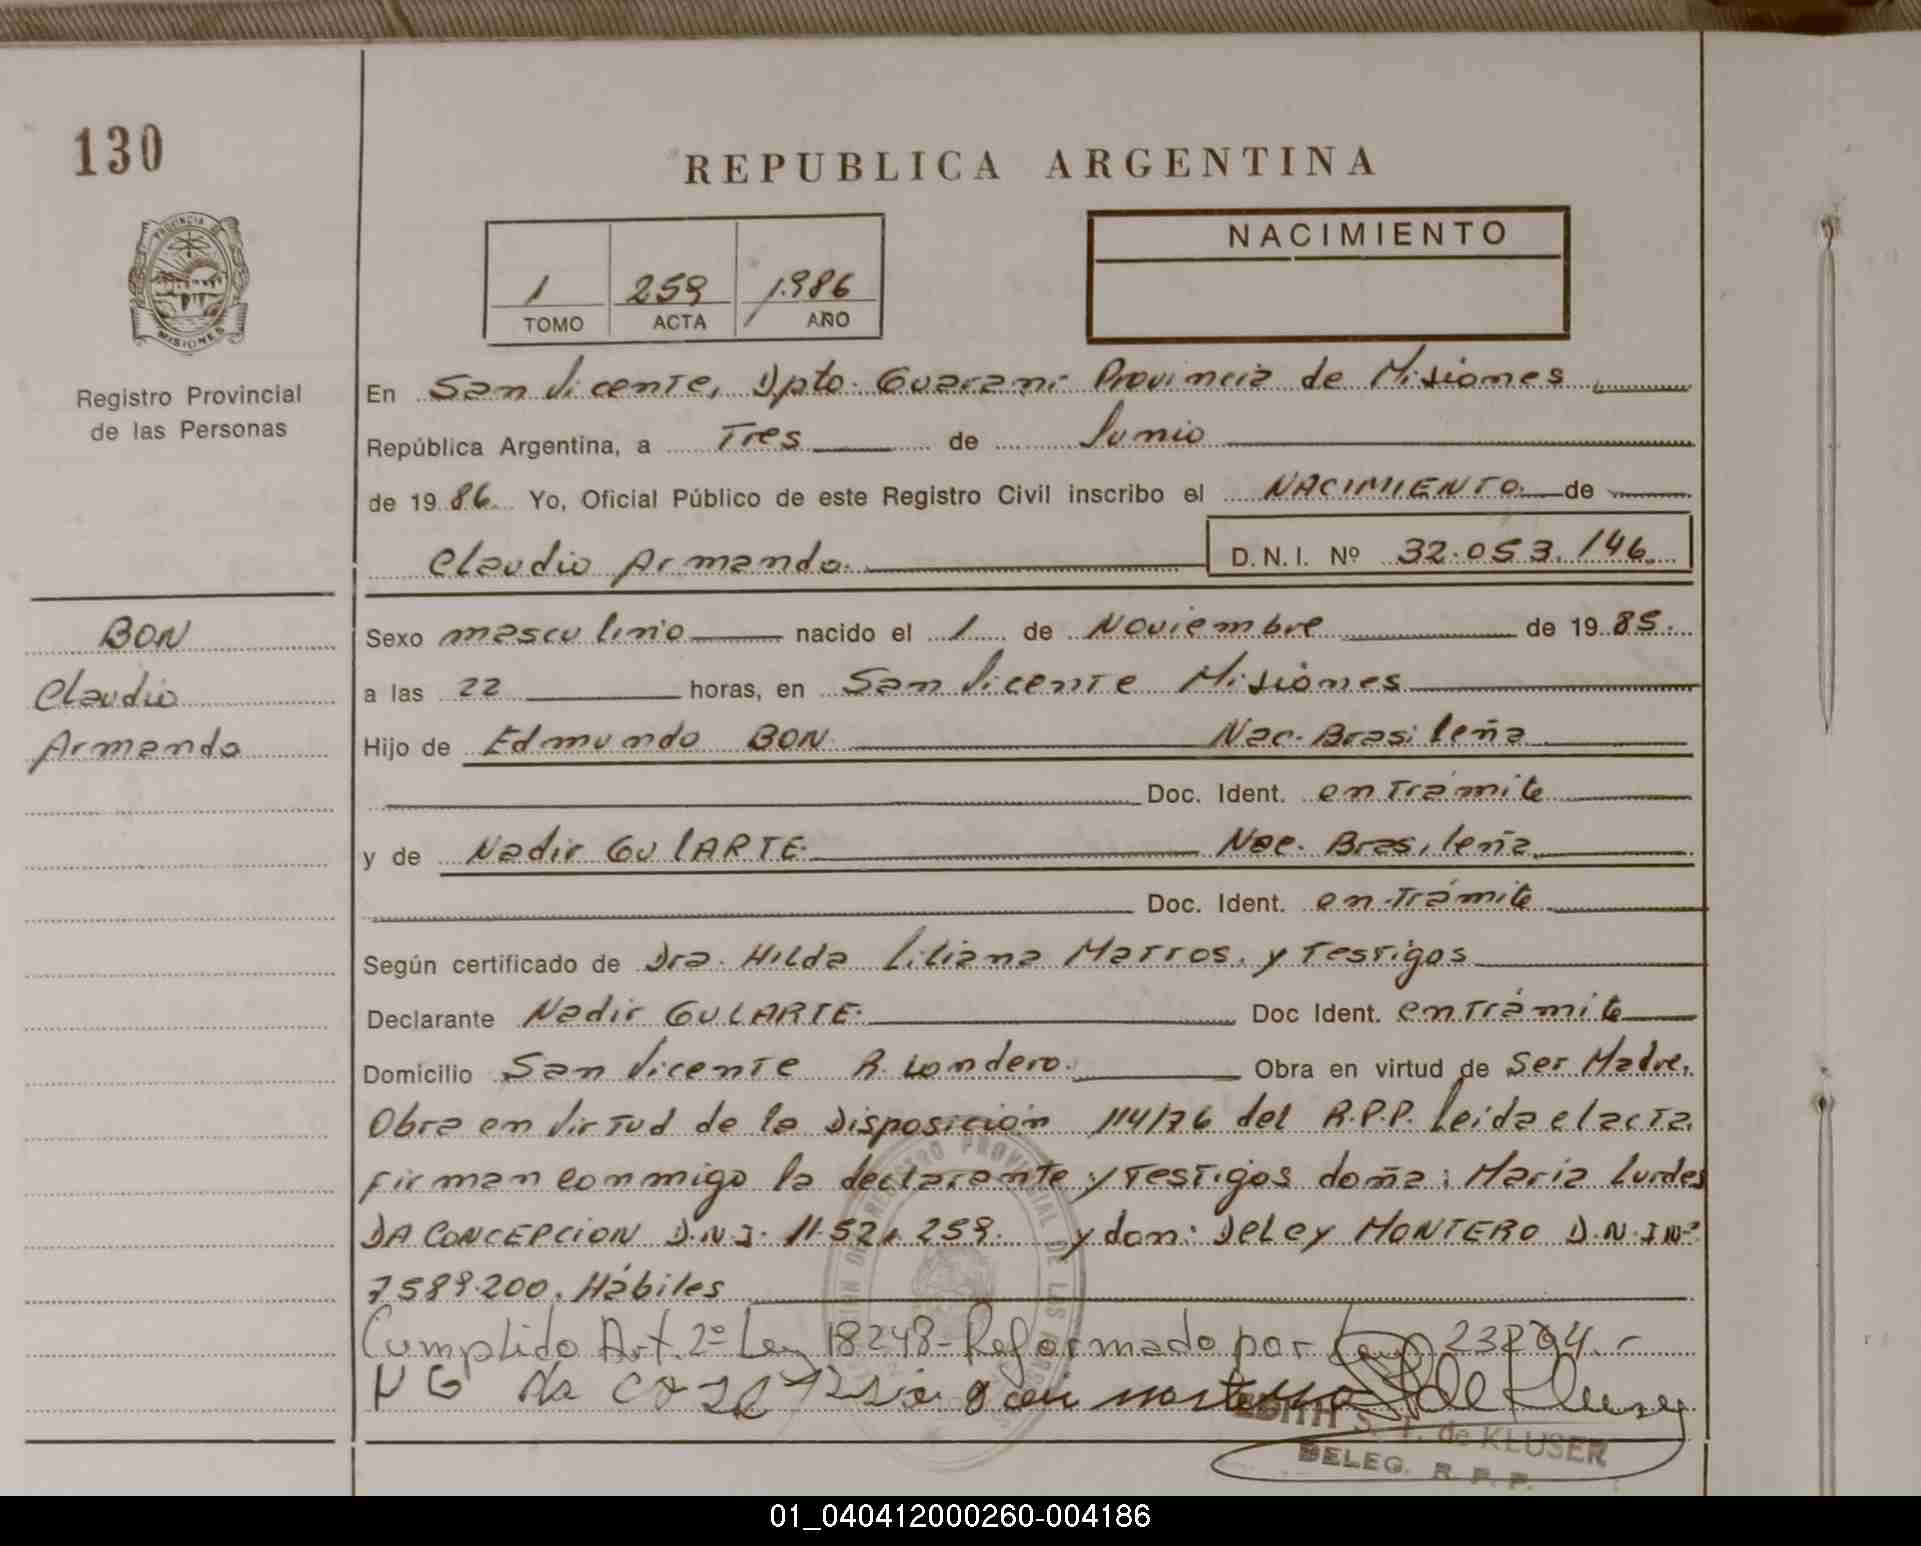 130
REPUBLICA ARGENTINA
PROVINCIA DE
MISIONES
1 259 1.986
TOMO ACTA AÑO
NACIMIENTO
Registro Provincial
de las Personas
En San Vicente, Dpto. Guarani Provincia de Misiones
República Argentina, a Tres de Junio
de 19 86. Yo, Oficial Público de este Registro Civil inscribo el NACIMIENTO de
Claudio Armando. D.N.I. Nº 32.053.146.
BON
Claudio
Armando
Sexo masculino nacido el 1 de Noviembre de 19 85.
a las 22 horas, en San Vicente Misiones
Hijo de Edmundo BON Nac. Brasileña
Doc. Ident. en Trámite
y de Nadir GULARTE Nac. Brasileña
Doc. Ident. en Trámite
Según certificado de Dra. Hilda Liliana Matros. y Testigos
Declarante Nadir GULARTE. Doc Ident. en Trámite
Domicilio San Vicente R. Londero. Obra en virtud de Ser Madre.
Obra en Virtud de la Disposición 114/76 del R.P.P. Leída el acta,
firman conmigo la declarante y Testigos doña: Maria Lurdes
DA CONCEPCION D.N.I. 11.521.259. y don: Deley MONTERO D.N.I Nº
7589.200. Hábiles
Cumplido Art. 2º Ley 18248-Reformado por Ley
N G
EDITH S. T. de KLUSER
DELEG. R. P. P.
01_040412000260-004186